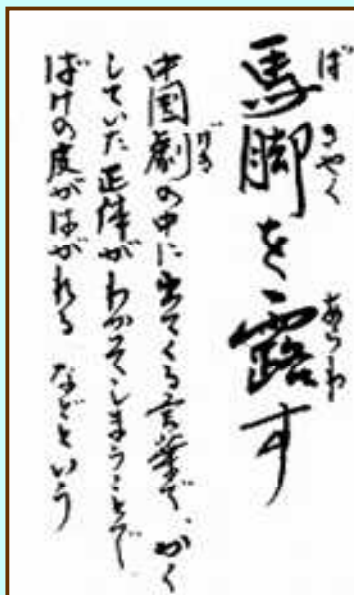 馬脚を露す
ば きゃく あらわ
中国劇の中に出てくる言葉で、かく
げき
していた正体がわかってしまうことで
ばけの皮がはがれる などという